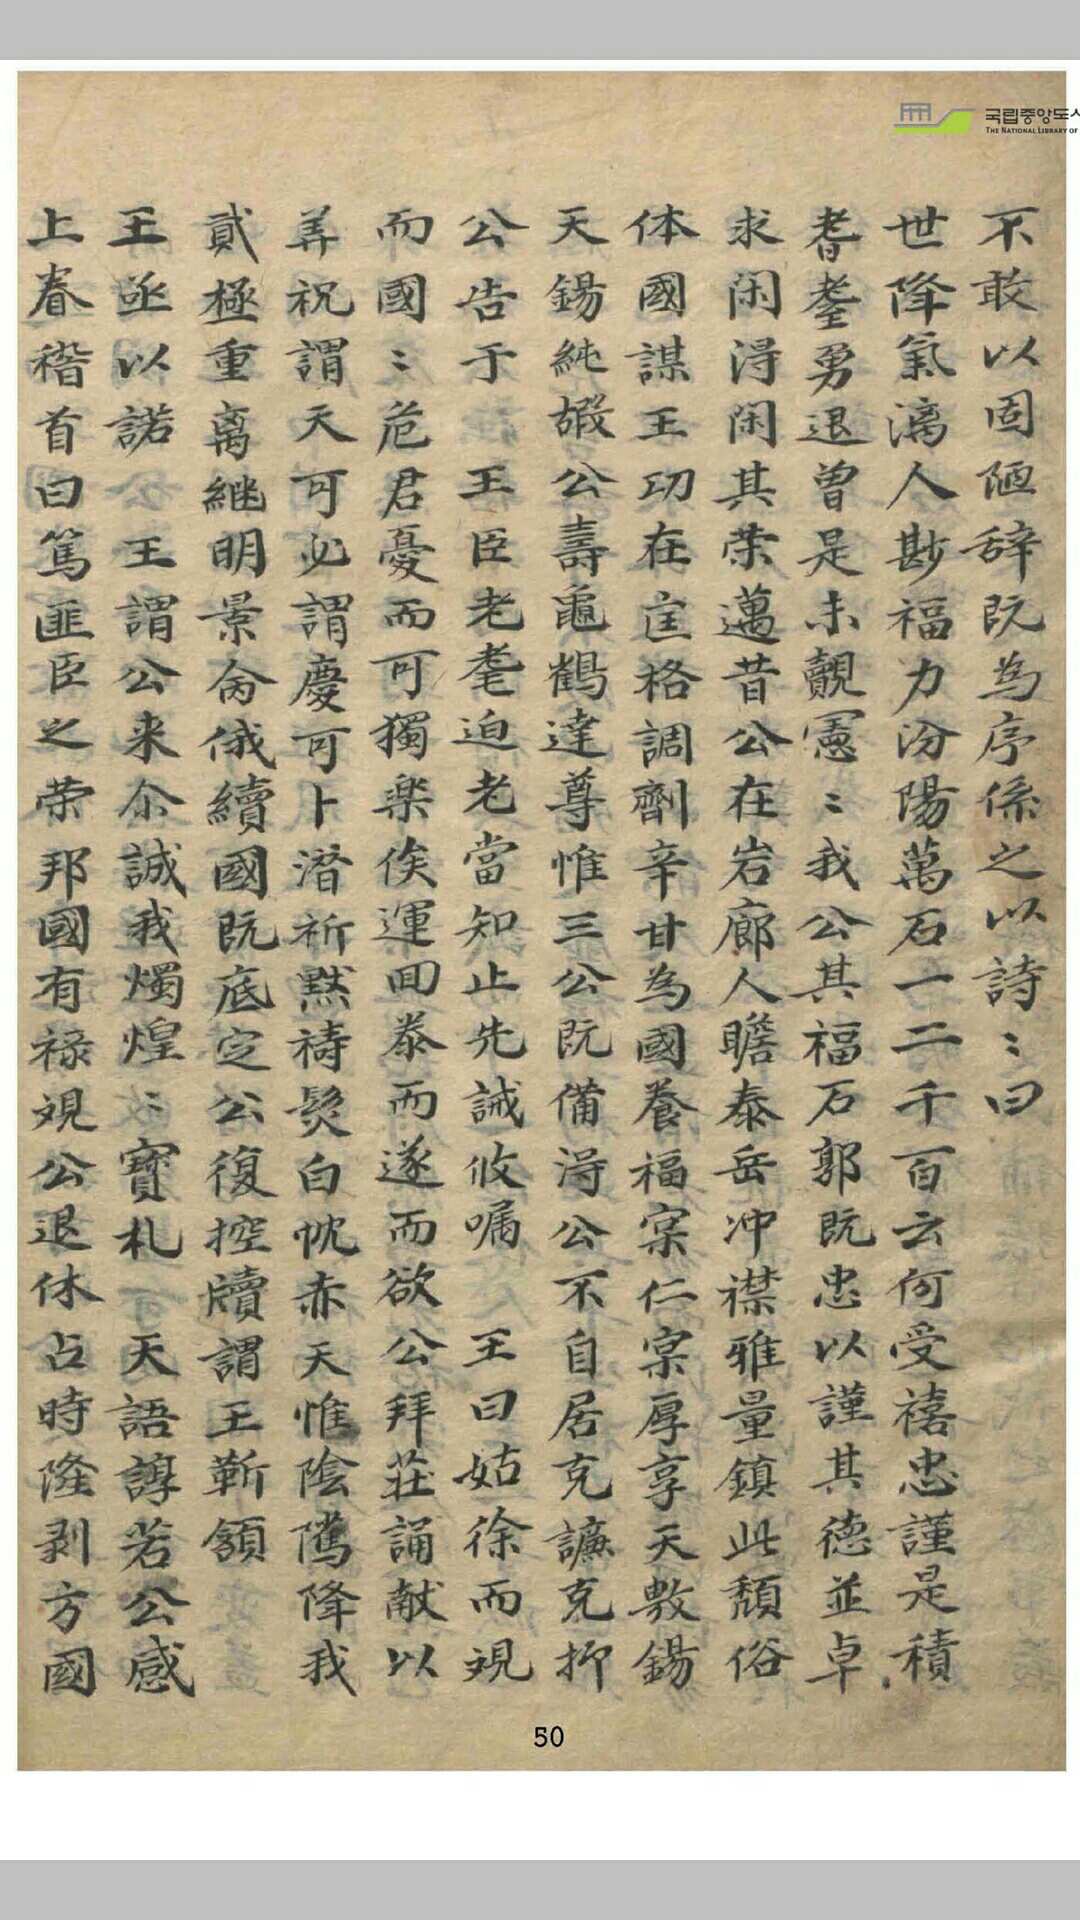 국립중앙도서
THE NATIONAL LIBRARY OF
不敢以固陋辞既為序係之以詩〻曰
世降氣漓人尠福力汾陽萬石一二千百云何受禧忠謹是積
耆耋勇退曾是未覿憲〻我公其福石郭既忠以謹其德並卓
求闲淂闲其荣邁昔公在岩廊人瞻泰岳冲襟雅量鎮此頹俗
体國謀王功在匡格調劑辛甘為國養福寀仁寀厚享天敷錫
天錫純嘏公壽龜鶴達尊惟三公既備淂公不自居克謙克抑
公告于 王臣老耄迫老當知止先誡攸嘱 王曰姑徐而視
而國〻危君憂而可獨楽俟運回泰而遂而欲公拜莊誦献以
羙祝謂天可必謂慶可卜潜祈黙祷髮白忱赤天惟陰隲降我
貳極重离继明景侖俄續國既底定公復控牘謂王靳領
王亟以諾公王謂公来尒誠我燭煌〻寶札 天語諄若公感
上眷稽首曰篤匪臣之荣邦國有禄覌公退休占時隆剥方國
50